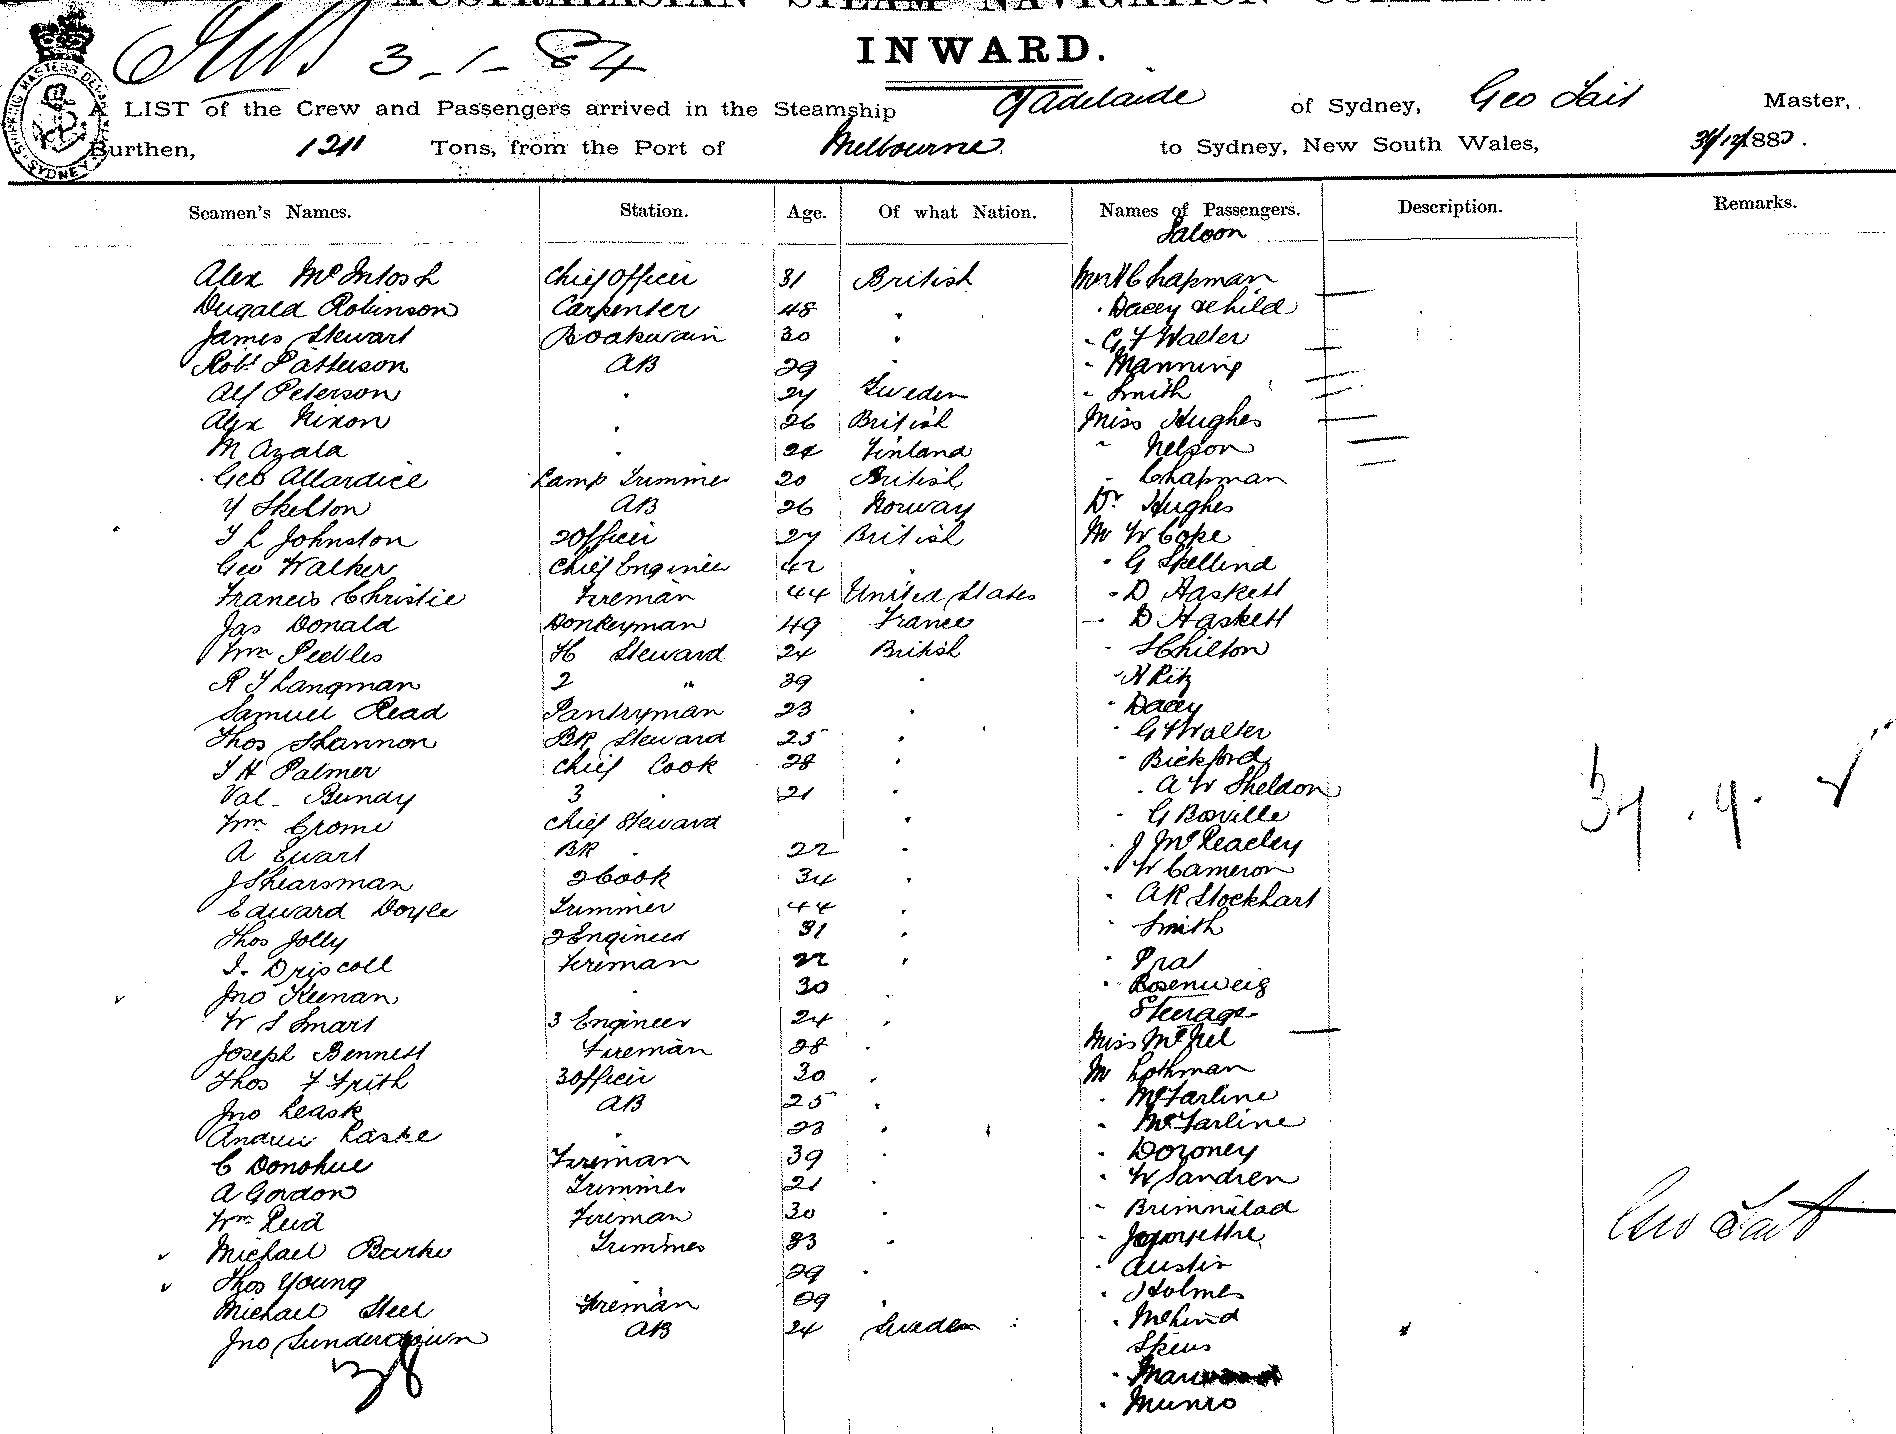 AUSTRALASIAN STEAM NAVIGATION COMPANY.
INWARD.
3-1-84
SHIPPING MASTERS DEPARTMENT SYDNEY
A LIST of the Crew and Passengers arrived in the Steamship Adelaide of Sydney, Geo Tait Master,
Burthen, 1211 Tons, from the Port of Melbourne to Sydney, New South Wales, 31/12/1883.
Seamen's Names. Station. Age. Of what Nation. Names of Passengers. Description. Remarks.
Saloon
Alex McIntosh Chief Officer 31 British Chapman
Dugald Robinson Carpenter 48 " Dacey & Child
James Stewart Boatswain 30 " G F Walter
Robt Patterson AB 29 " Manning
Alf Peterson " 27 Sweden " Smith
Alex Nixon " 26 British Miss Hughes
M Azala " 24 Finland " Nelson
Geo Allardice Lamp Trimmer 20 British " Chapman
Y Skelton AB 26 Norway Dr Hughes
T L Johnston 2 Officer 27 British Mr W Cope
Geo Walker Chief Engineer 42 " G Skellind
Francis Christie Fireman 44 United States " D Haskett
Jas Donald Donkeyman 49 France " D Haskett
Wm Peebles H Steward 24 British " S Chilton
R T Langman 2 " 39 " H Ritz
Samuel Read Pantryman 23 " Dacey
Thos Shannon BR Steward 25 " G F Walter
T H Palmer Chief Cook 28 " Bickford
Val Bundy 3 " 21 " A W Sheldon
Wm Crome Chief Steward " G Boville
A Ewart BR " 22 " J McReadey
J Shearsman 2 Cook 34 " W Cameron
Edward Doyle Trimmer 44 " A R Stockhart
Thos Jolly 2 Engineer 31 " Smith
J. Driscoll Fireman 22 " Prat
Jno Keenan " 30 " Rosenweig
Steerage
W S Smart 3 Engineer 24 "
Joseph Bennett Fireman 28 " Miss McNeil
Thos F Frith 3 Officer 30 " Mr Lothman
Jno Leask AB 25 " McFarline
Andrew Laske " 23 " McFarline
C Donohue Fireman 39 " Doroney
A Gordon Trimmer 21 " W Sandren
Wm Reid Fireman 30 " Brimnilad
Michael Burke Trimmer 33 "
Thos Young " 29 " Austin
Michael Steel Fireman 29 " Holmes
Jno Sunderdown AB 24 Sweden
38
Skeus
Munro
Geo Tait